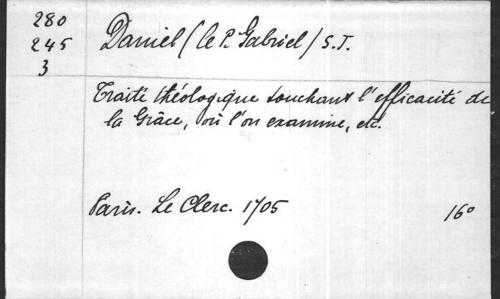 280
245
3
Daniel (le P. Gabriel) S.J.
Traité théologique touchant l'efficacité de
la Grâce, où l'on examine, etc.
Paris. Le Clerc. 1705 16°